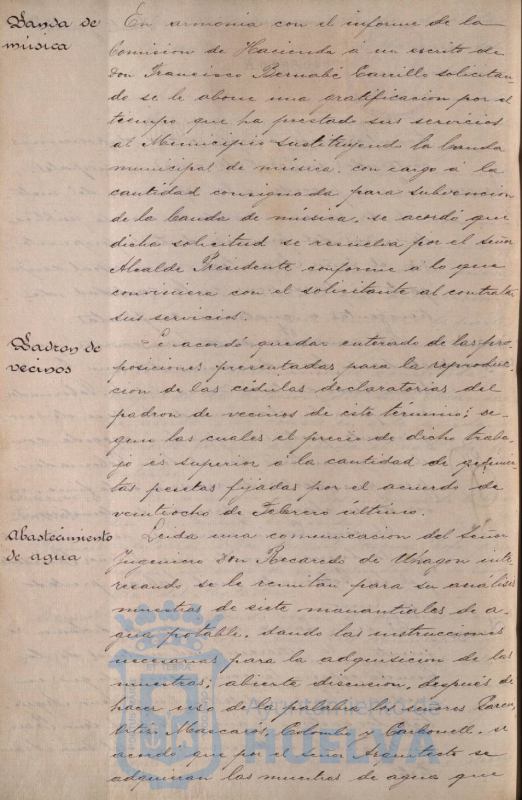 Banda de
música
En armonía con el informe de la
Comision de Hacienda á un escrito de
Don Francisco Bernabé Carrillo solicitan-
do se le abone una gratificacion por el
tiempo que ha prestado sus servicios
al Municipio sustituyendo la banda
municipal de música, con cargo á la
cantidad consignada para subvencion
de la banda de música, se acordó que
dicha solicitud se resuelva por el señor
Alcalde Presidente conforme á lo que
conviniere con el solicitante al contratar
sus servicios.
Padron de
vecinos
Se acordó quedar enterado de las pro-
posiciones presentadas para la reproduc-
cion de las cédulas declaratorias del
padron de vecinos de este término; se-
gun las cuales el precio de dicho traba-
jo es superior á la cantidad de
tas pesetas fijadas por el acuerdo de
veintiocho de Febrero último.
Abastecimiento
de agua
Leida una comunicacion del Señor
Ingeniero Don Recaredo de Uhagon inte-
resando se le remitan para su análisis
muestras de siete manantiales de a-
gua potable, dando las instrucciones
necesarias para la adquisicion de las
muestras; abierta discusion, despues de
hacer uso de la palabra los señores Garcia
Mascarós, Colombo y Carbonell, se
acordó que por el señor Arquitecto se
adquieran las muestras de agua que
HUELVA